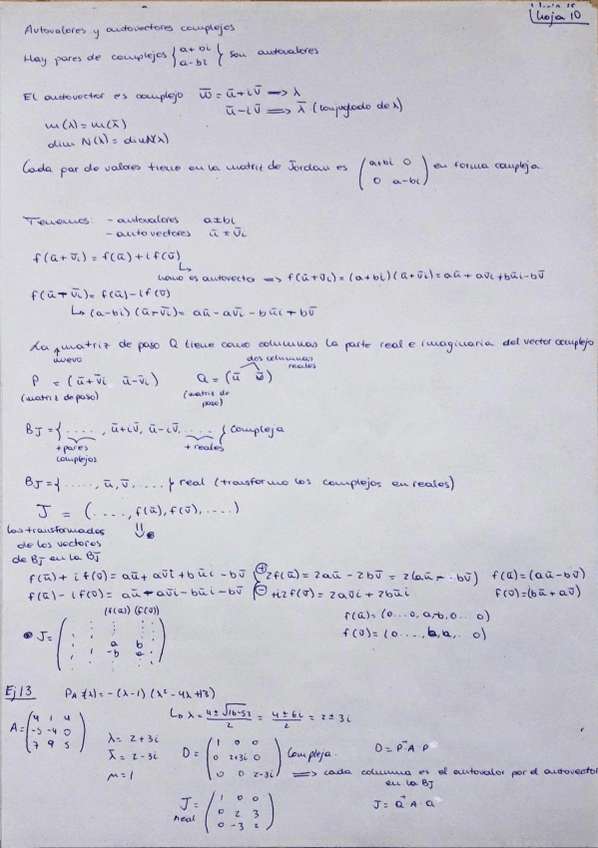 hoja 10
Autovalores y autovectores complejos
Hay pares de complejos { a+bi a-bi } son autovalores
El autovector es complejo w̅ = u̅+iv̅ => λ
u̅-iv̅ => λ̅ (conjugado de λ)
m(λ) = m(λ̅)
dim N(λ) = dim N(λ̅)
Cada par de valores tiene en la matriz de Jordan es ( a+bi 0 0 a-bi ) en forma compleja.
Tenemos: - autovalores a±bi
- autovectores u̅ ± v̅i
f(u̅+v̅i) = f(u̅)+if(v̅)
como es autovector => f(u̅+v̅i) = (a+bi)(u̅+v̅i) = au̅+av̅i+bu̅i-bv̅
f(u̅-v̅i) = f(u̅)-if(v̅)
↳ (a-bi)(u̅-v̅i) = au̅-av̅i-bu̅i+bv̅
La matriz de paso Q tiene como columnas la parte real e imaginaria del vector complejo
nuevo dos columnas reales
P = (u̅+v̅i u̅-v̅i) Q = (u̅ v̅)
(matriz de paso) (matriz de paso)
BJ = { ....., u̅+iv̅, u̅-iv̅, .... } compleja
+pares complejos +reales
BJ = { ....., u̅, v̅, .... } real (transformo los complejos en reales)
J = (...., f(u̅), f(v̅), ....)
los transformados
de los vectores
de BJ en la BJ
f(u̅)+if(v̅) = au̅+av̅i+bu̅i-bv̅ (+) 2f(u̅) = 2au̅-2bv̅ = 2(au̅-bv̅) f(u̅) = (au̅-bv̅)
f(u̅)-if(v̅) = au̅-av̅i-bu̅i-bv̅ (-) +i2f(v̅) = 2av̅i+2bu̅i f(v̅) = (bu̅+av̅)
f(u̅) = (0...0, a,-b, 0.. 0)
f(v̅) = (0...., b,a,.. 0)
(f(u̅)) (f(v̅))
J = ( a b -b a )
Ej 13 PA(λ) = -(λ-1)(λ²-4λ+13)
↳ λ = 4±√16-52 / 2 = 4±6i / 2 = 2±3i
A = ( 4 1 4 -5 -4 0 7 9 5 )
λ = 2+3i
λ̅ = 2-3i
μ = 1
D = ( 1 0 0 0 2+3i 0 0 0 2-3i ) compleja.
D = P⁻¹ A · P
=> cada columna es el autovalor por el autovector
en la BJ
J = ( 1 0 0 0 2 3 0 -3 2 )
real
J = Q⁻¹ A · Q